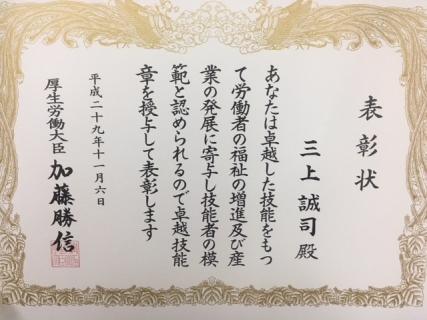 表彰状
三上誠司殿
あなたは卓越した技能をもつ
て労働者の福祉の増進及び産
業の発展に寄与し技能者の模
範と認められるので卓越技能
章を授与して表彰します
平成二十九年十一月六日
厚生労働大臣 加藤勝信